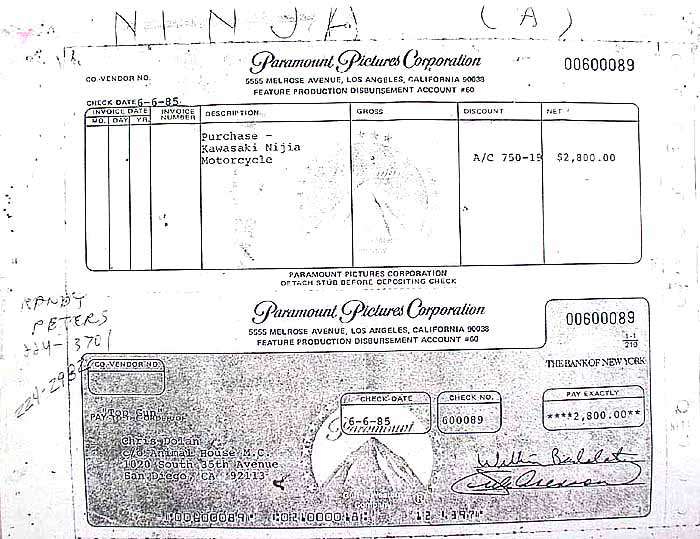 NINJA (A)
Paramount Pictures Corporation
00600089
CO.VENDOR NO.
5555 MELROSE AVENUE, LOS ANGELES, CALIFORNIA 90038
FEATURE PRODUCTION DISBURSEMENT ACCOUNT #60
CHECK DATE 6-6-85
INVOICE DATE INVOICE NUMBER DESCRIPTION GROSS DISCOUNT NET
MO. DAY YR.
Purchase -
Kawasaki Nijia
Motorcycle A/C 750-19 $2,800.00
PARAMOUNT PICTURES CORPORATION
DETACH STUB BEFORE DEPOSITING CHECK
RANDY
PETERS
224-3701
224-2982
Paramount Pictures Corporation
00600089
5555 MELROSE AVENUE, LOS ANGELES, CALIFORNIA 90038
FEATURE PRODUCTION DISBURSEMENT ACCOUNT #60
1-1
210
THE BANK OF NEW YORK
CO.VENDOR NO.
CHECK DATE CHECK NO. PAY EXACTLY
6-6-85 600089 ****2,800.00**
"Top Gun"
PAY TO THE ORDER OF
Paramount
Chris Dolan
c/o Animal House M.C.
1020 South 35th Avenue
San Diego, CA 92113